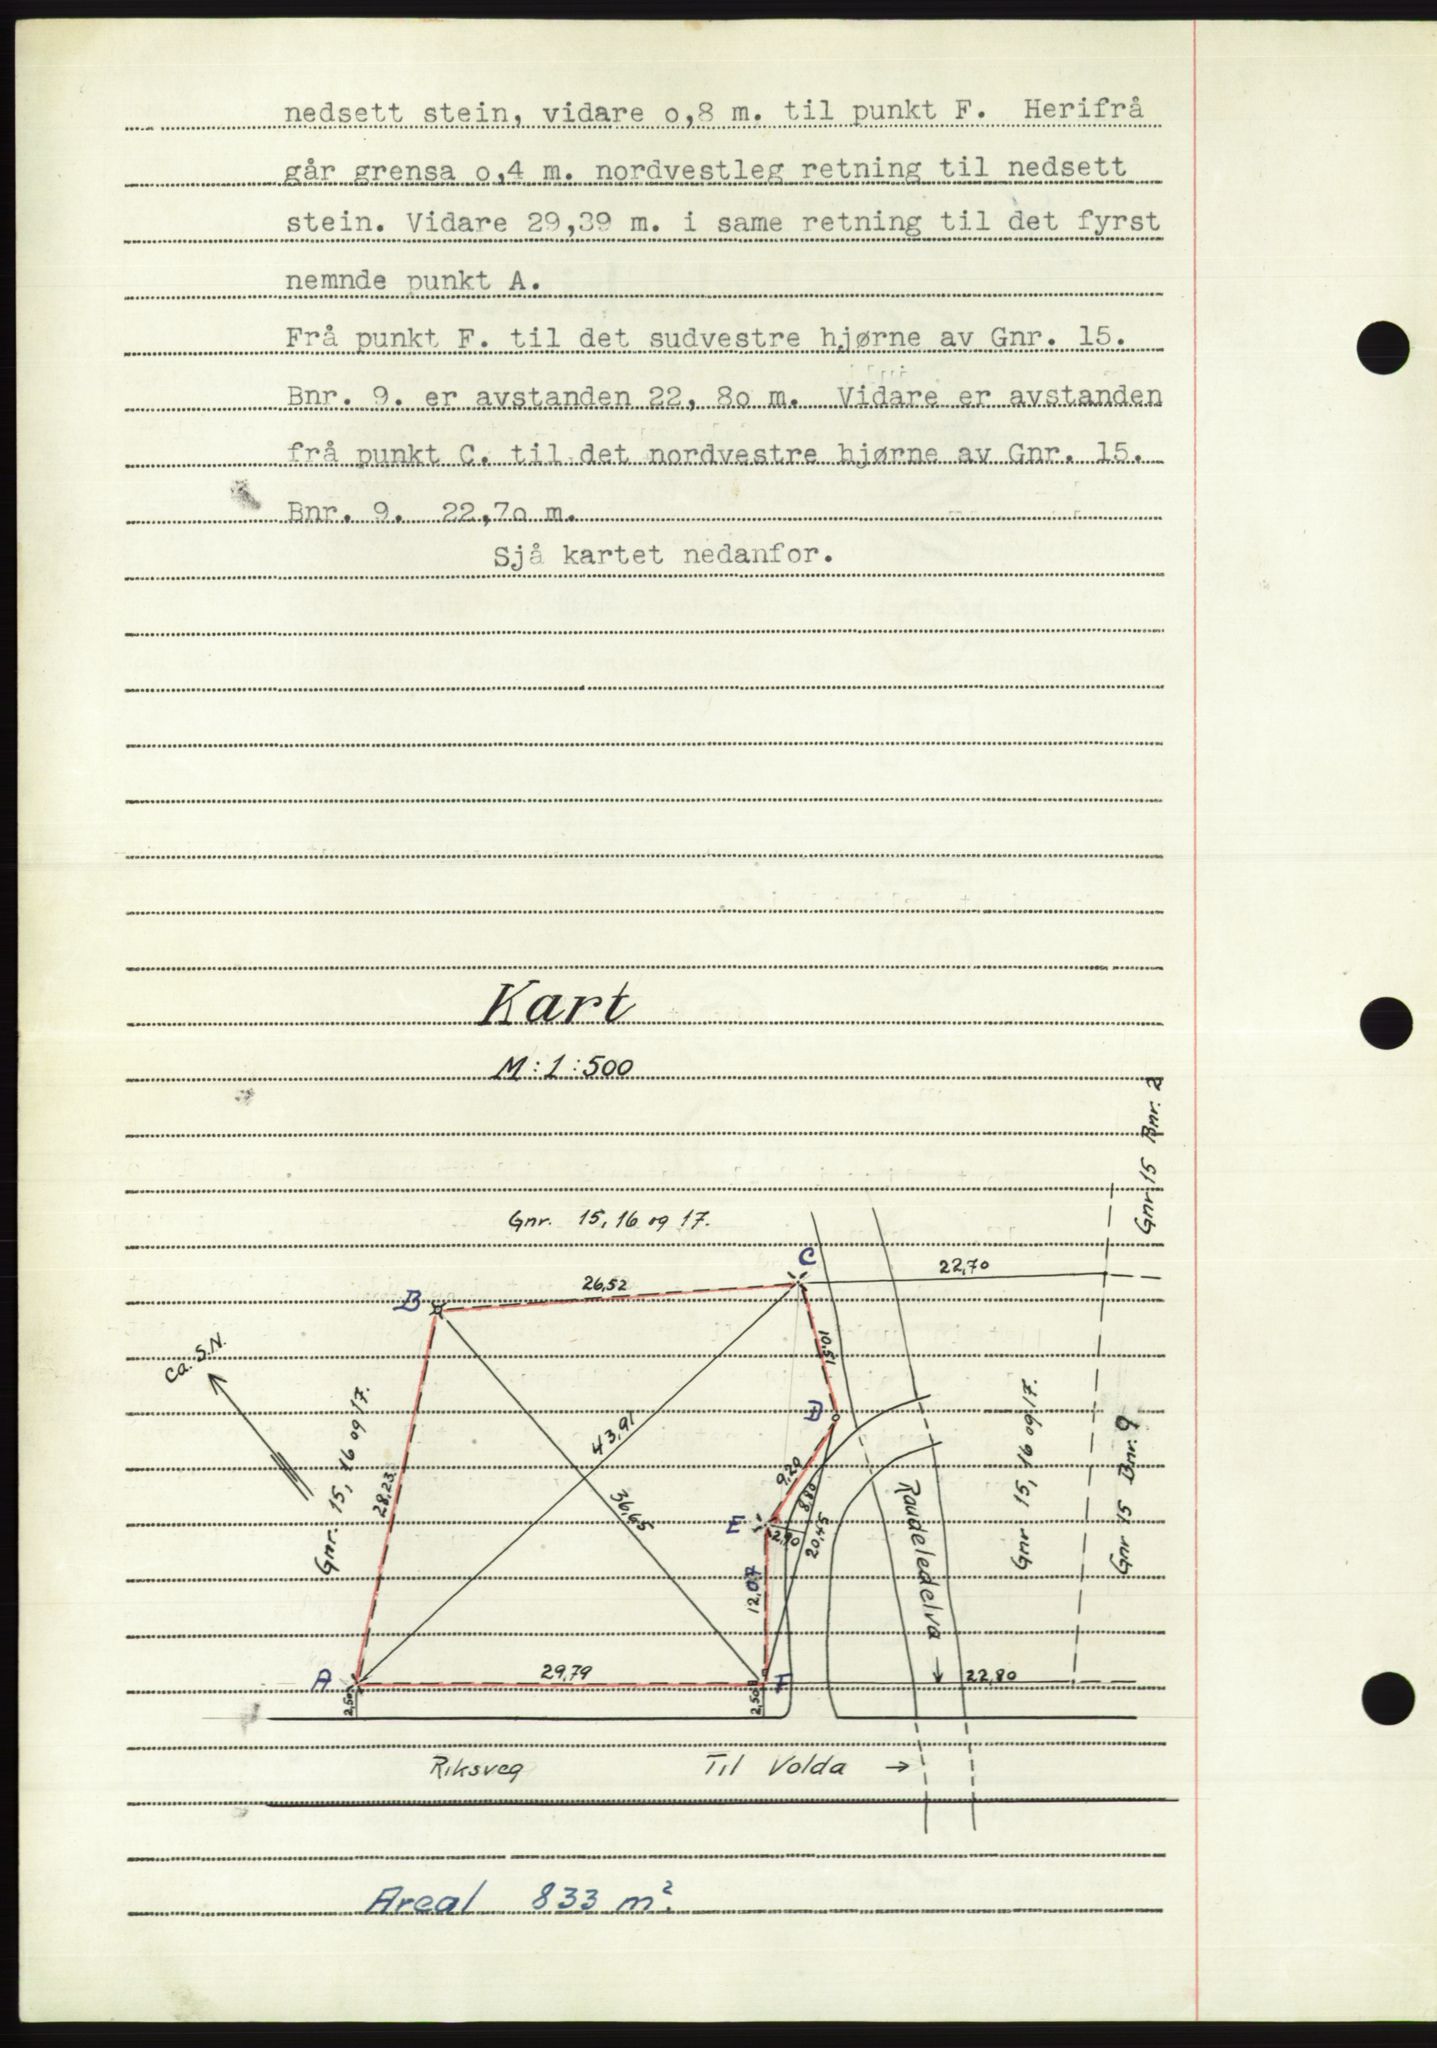 nedsett stein, vidare o,8 m. til punkt F. Herifrå
går grensa o,4 m. nordvestleg retning til nedsett
stein. Vidare 29,39 m. i same retning til det fyrst
nemnde punkt A.
Frå punkt F. til det sudvestre hjørne av Gnr. 15.
Bnr. 9. er avstanden 22, 8o m. Vidare er avstanden
frå punkt C. til det nordvestre hjørne av Gnr. 15.
Bnr. 9. 22,7o m.
Sjå kartet nedanfor.
Kart
M:1:500
Gnr 15 Bnr. 2
Gnr. 15, 16 og 17.
C
22,70
B
26,52
ca. S.N.
10,51
Gnr. 15, 16 og 17.
28,23
43,91
36,65
D
9,20
8,80
20,45
E
2,90
12,07
Raudeledelva
Gnr 15, 16 og 17.
Gnr 15 Bnr. 9
A
29,79
F
22,80
2,50
2,50
Riksveg
Til Volda →
Areal 833 m².